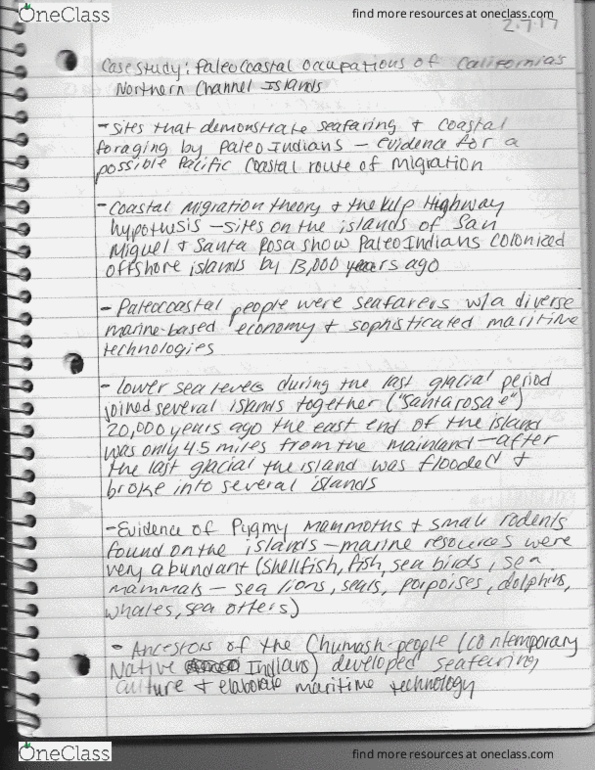 OneClass
find more resources at oneclass.com
2.7.17
Case study: Paleocoastal occupations of California's
Northern Channel Islands
- Sites that demonstrate seafaring + coastal
foraging by PaleoIndians - evidence for a
possible Pacific Coastal route of migration
- Coastal Migration theory + the Kelp Highway
hypothusis - sites on the islands of San
Miguel + Santa Rosa show PaleoIndians colonized
offshore islands by 13,000 years ago
- Paleocoastal people were seafarers w/a diverse
marine-based economy + sophisticated maritime
technologies
- lower sea levels during the last glacial period
joined several islands together ("santarosa e")
20,000 years ago the east end of the island
was only 4.5 miles from the mainland - after
the last glacial the island was flooded +
broke into several islands
- Evidence of Pygmy mammoths + small rodents
found on the islands - marine resources were
very abundant (shellfish, fish, sea birds, sea
mammals - sea lions, seals, porpoises, dolphins,
whales, sea otters)
- Ancestors of the Chumash people (contemporary
Native Indians) developed seafaring
culture + elaborate maritime technology
OneClass
find more resources at oneclass.com